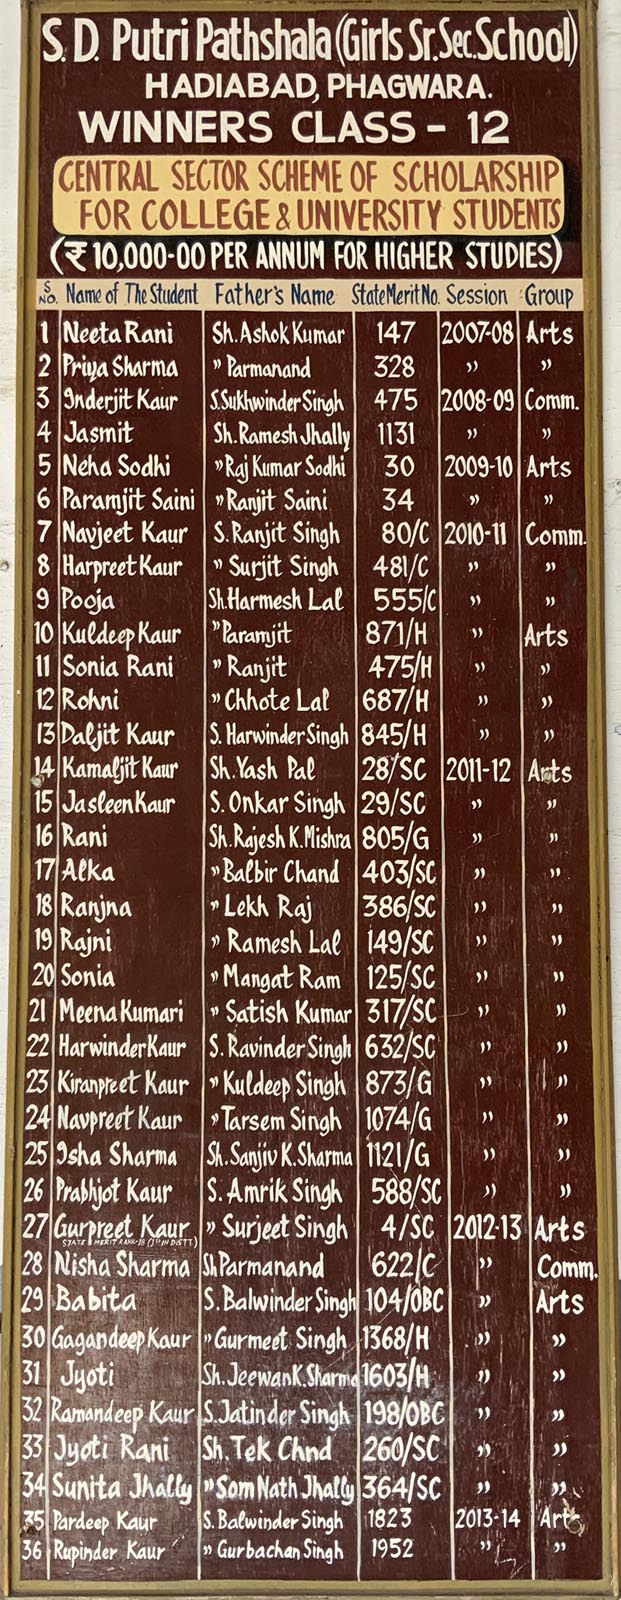 S. D. Putri Pathshala (Girls Sr. Sec. School)
HADIABAD, PHAGWARA.
WINNERS CLASS - 12
CENTRAL SECTOR SCHEME OF SCHOLARSHIP
FOR COLLEGE & UNIVERSITY STUDENTS
(₹ 10,000-00 PER ANNUM FOR HIGHER STUDIES)
S. NO. Name of The Student Father's Name State Merit No. Session Group
1 Neeta Rani Sh. Ashok Kumar 147 2007-08 Arts
2 Priya Sharma " Parmanand 328 " "
3 Inderjit Kaur S. Sukhwinder Singh 475 2008-09 Comm.
4 Jasmit Sh. Ramesh Jhally 1131 " "
5 Neha Sodhi " Raj Kumar Sodhi 30 2009-10 Arts
6 Paramjit Saini " Ranjit Saini 34 " "
7 Navjeet Kaur S. Ranjit Singh 80/C 2010-11 Comm.
8 Harpreet Kaur " Surjit Singh 481/C " "
9 Pooja Sh. Harmesh Lal 555/C " "
10 Kuldeep Kaur " Paramjit 871/H " Arts
11 Sonia Rani " Ranjit 475/H " "
12 Rohni " Chhote Lal 687/H " "
13 Daljit Kaur S. Harwinder Singh 845/H " "
14 Kamaljit Kaur Sh. Yash Pal 28/SC 2011-12 Arts
15 Jasleen Kaur S. Onkar Singh 29/SC " "
16 Rani Sh. Rajesh K. Mishra 805/G " "
17 Alka " Balbir Chand 403/SC " "
18 Ranjna " Lekh Raj 386/SC " "
19 Rajni " Ramesh Lal 149/SC " "
20 Sonia " Mangat Ram 125/SC " "
21 Meena Kumari " Satish Kumar 317/SC " "
22 Harwinder Kaur S. Ravinder Singh 632/SC " "
23 Kiranpreet Kaur " Kuldeep Singh 873/G " "
24 Navpreet Kaur " Tarsem Singh 1074/G " "
25 Isha Sharma Sh. Sanjiv K. Sharma 1121/G " "
26 Prabhjot Kaur S. Amrik Singh 588/SC " "
27 Gurpreet Kaur " Surjeet Singh 4/SC 2012-13 Arts
STATE MERIT RANK-18 (1st IN DISTT.)
28 Nisha Sharma Sh Parmanand 622/C " Comm.
29 Babita S. Balwinder Singh 104/OBC " Arts
30 Gagandeep Kaur " Gurmeet Singh 1368/H " "
31 Jyoti Sh. Jeewan K. Sharma 1603/H " "
32 Ramandeep Kaur S. Jatinder Singh 198/OBC " "
33 Jyoti Rani Sh. Tek Chnd 260/SC " "
34 Sunita Jhally " Som Nath Jhally 364/SC " "
35 Pardeep Kaur S. Balwinder Singh 1823 2013-14 Arts
36 Rupinder Kaur " Gurbachan Singh 1952 " "